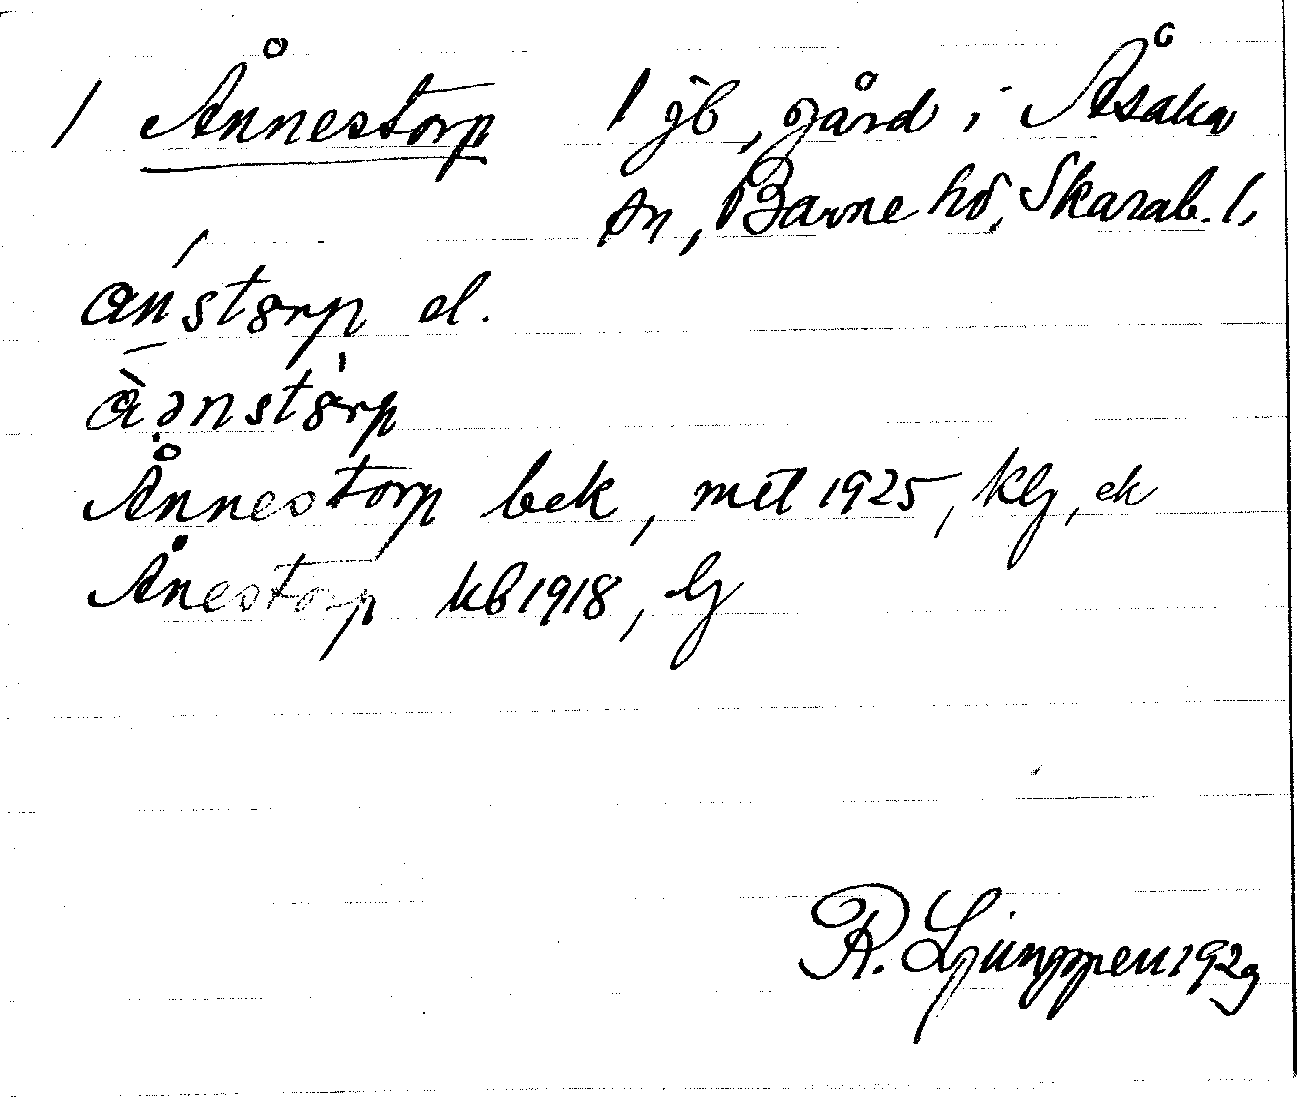 / Ånnestorp 1 jb, gård i Åsaka
sn, Barne hd, Skarab. l,
el.
Ånnestorp bek, mtl 1925, klj, ek
Ånestorp kb 1918, lj
R. Ljunggren 1929